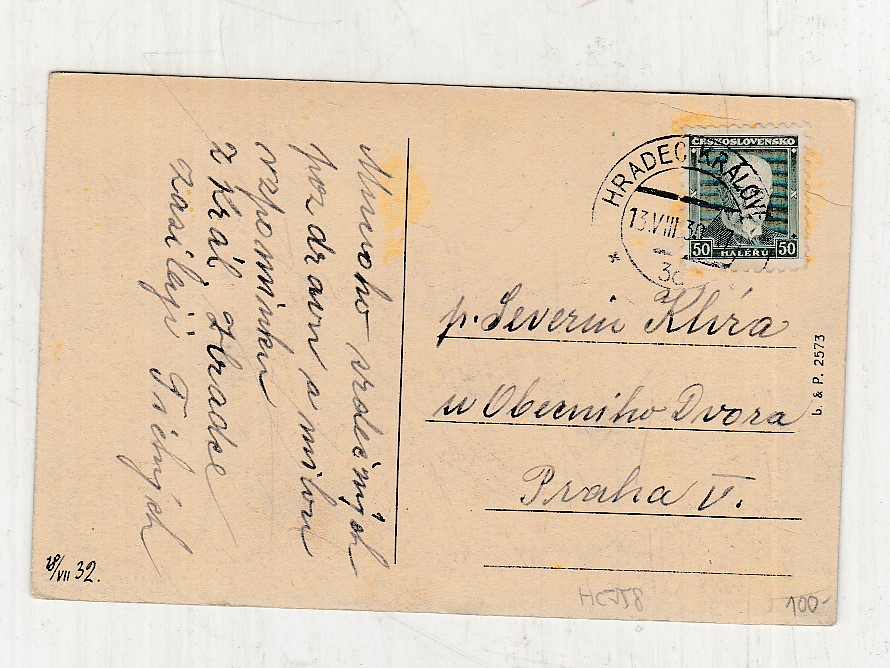 Mnoho srdečných
pozdravů a milou
vzpomínku
z Král. Hradce
zasílají
18/VII 32.
HRADEC KRÁLOVÉ
13.VIII 3
*
3c
ČESKOSLOVENSKO
50 HALÉŘŮ 50
p. Severin Klíra
u Obecního Dvora
Praha V.
b. & P. 2573
100-